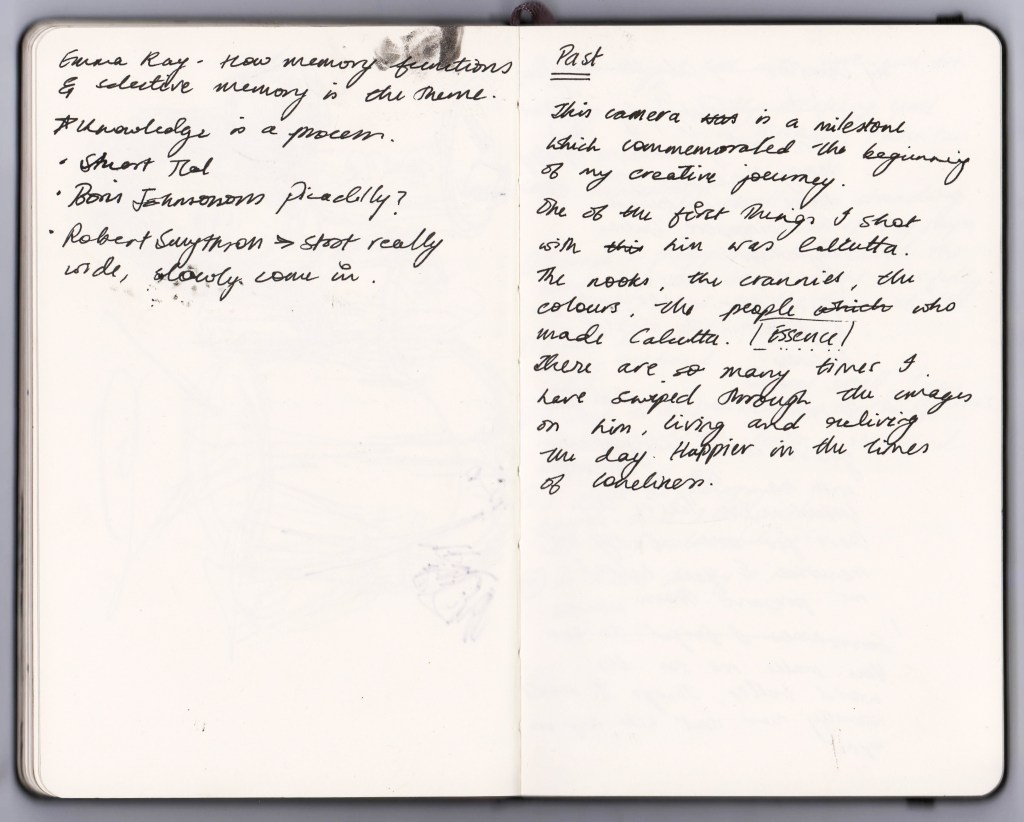 Emma Ray - How memory functions
& selective memory is the theme.
* Knowledge is a process.
• Stuart
• Boris Johnsons Picadilly?
• Robert → shoot really
wide, slowly come in.
Past
This camera was is a milestone
which commemorated the beginning
of my creative journey.
One of the first things I shot
with this him was Calcutta.
The nooks, the crannies, the
colours, the people which who
made Calcutta. [Essence]
There are so many times I
have swiped through the images
on him, living and reliving
the day. Happier in the times
of loneliness.